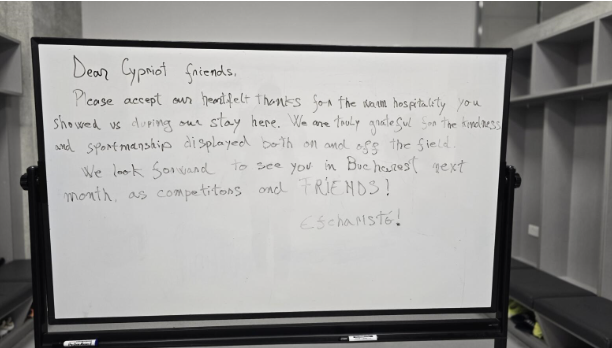 Dear Cypriot friends,
Please accept our heartfelt thanks for the warm hospitality you
showed us during our stay here. We are truly grateful for the kindness
and sportmanship displayed both on and off the field.
We look forward to see you in Bucharest next
month, as competitors and FRIENDS!
Efchamsto!